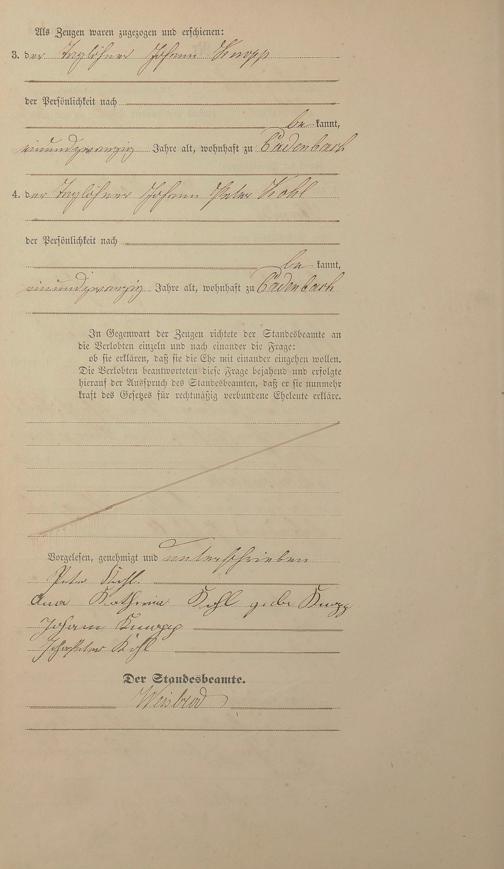 Als Zeugen waren zugezogen und erschienen:
3. der Taglöhner Johann Knopp
der Persönlichkeit nach
be kannt,
einundzwanzig Jahre alt, wohnhaft zu Cadenbach
4. der Taglöhner Johann Peter Kohl
der Persönlichkeit nach
be kannt,
einundzwanzig Jahre alt, wohnhaft zu Cadenbach
In Gegenwart der Zeugen richtete der Standesbeamte an
die Verlobten einzeln und nach einander die Frage:
ob sie erklären, daß sie die Ehe mit einander eingehen wollen.
Die Verlobten beantworteten diese Frage bejahend und erfolgte
hierauf der Ausspruch des Standesbeamten, daß er sie nunmehr
kraft des Gesetzes für rechtmäßig verbundene Eheleute erkläre.
Vorgelesen, genehmigt und unterschrieben
Peter Kohl.
Ana Katharina Kohl gebe Knopp
Johann Knopp
Joh Peter Kohl
Der Standesbeamte.
Weisbrod